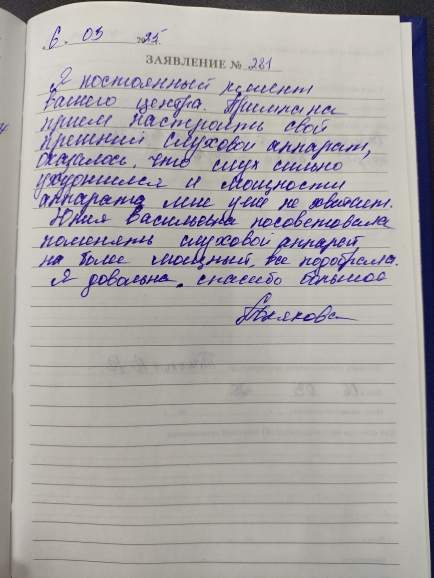 6. 03 2025.
ЗАЯВЛЕНИЕ № 281
Я постоянный клиент
вашего центра. Пришла на
прием настроить свой
прежний слуховой аппарат,
оказалось, что слух сильно
ухудшился и мощности
аппарата мне уже не хватает.
Юлия Васильевна посоветовала
поменять слуховой аппарат
на более мощный, все подобрала.
Я довольна, спасибо большое